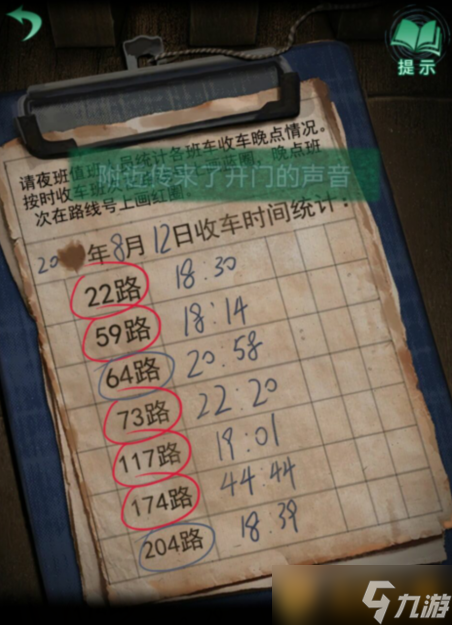 提示
请夜班值班人员统计各班车收车晚点情况。
按时收车班次在路线号上画蓝圈，晚点班
次在路线号上画红圈
附近传来了开门的声音
20 年8月12日收车时间统计：
22路 18:30
59路 18:14
64路 20:58
73路 22:20
117路 19:01
174路 44:44
204路 18:39
九游